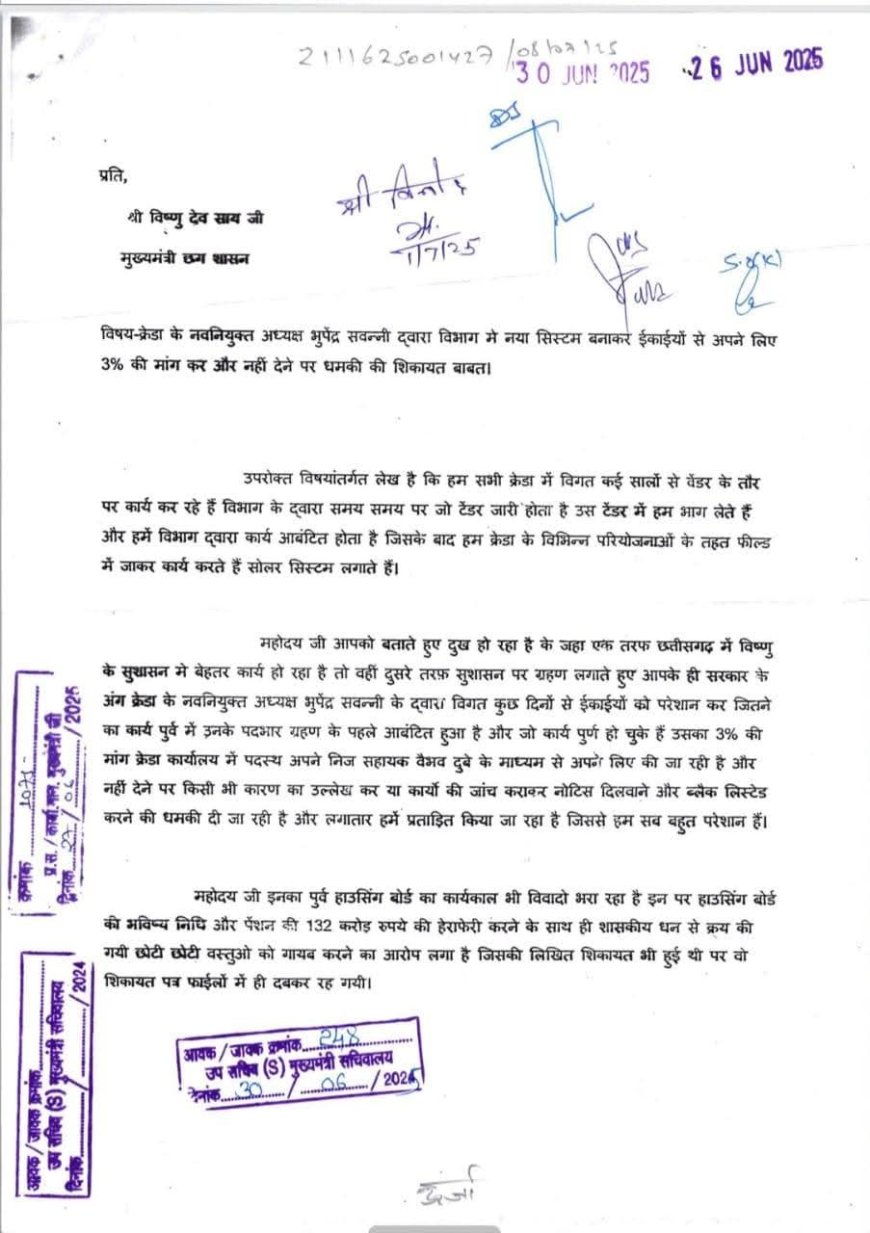 2111625001427/08/07/25
30 JUN 2025
26 JUN 2025
प्रति,
श्री विष्णु देव साय जी
मुख्यमंत्री छग शासन
श्री विनोद
1/7/25
विषय-क्रेडा के नवनियुक्त अध्यक्ष भुपेंद्र सवन्नी द्वारा विभाग मे नया सिस्टम बनाकर ईकाईयों से अपने लिए
3% की मांग कर और नहीं देने पर धमकी की शिकायत बाबत।
उपरोक्त विषयांतर्गत लेख है कि हम सभी क्रेडा में विगत कई सालों से वेंडर के तौर
पर कार्य कर रहे हैं विभाग के द्वारा समय समय पर जो टेंडर जारी होता है उस टेंडर में हम भाग लेते हैं
और हमें विभाग द्वारा कार्य आबंटित होता है जिसके बाद हम क्रेडा के विभिन्न परियोजनाओं के तहत फील्ड
में जाकर कार्य करते हैं सोलर सिस्टम लगाते हैं।
महोदय जी आपको बताते हुए दुख हो रहा है के जहा एक तरफ छत्तीसगढ़ में विष्णु
के सुशासन मे बेहतर कार्य हो रहा है तो वहीं दुसरे तरफ़ सुशासन पर ग्रहण लगाते हुए आपके ही सरकार के
अंग क्रेडा के नवनियुक्त अध्यक्ष भुपेंद्र सवन्नी के द्वारा विगत कुछ दिनों से ईकाईयों को परेशान कर जितने
का कार्य पुर्व में उनके पदभार ग्रहण के पहले आबंटित हुआ है और जो कार्य पुर्ण हो चुके हैं उसका 3% की
मांग क्रेडा कार्यालय में पदस्थ अपने निज सहायक वैभव दुबे के माध्यम से अपने लिए की जा रही है और
नहीं देने पर किसी भी कारण का उल्लेख कर या कार्यो की जांच कराकर नोटिस दिलवाने और ब्लैक लिस्टेड
करने की धमकी दी जा रही है और लगातार हमें प्रताड़ित किया जा रहा है जिससे हम सब बहुत परेशान हैं।
महोदय जी इनका पुर्व हाउसिंग बोर्ड का कार्यकाल भी विवादो भरा रहा है इन पर हाउसिंग बोर्ड
की भविष्य निधि और पेंशन की 132 करोड़ रुपये की हेराफेरी करने के साथ ही शासकीय धन से क्रय की
गयी छोटी छोटी वस्तुओ को गायब करने का आरोप लगा है जिसकी लिखित शिकायत भी हुई थी पर वो
शिकायत पत्र फाईलों में ही दबकर रह गयी।
क्रमांक
प्र.स./कार्या.मान. मुख्यमंत्री जी
दिनांक 27/06/2025
आवक/जावक क्रमांक
उप सचिव (S) मुख्यमंत्री सचिवालय
दिनांक / /2024
आवक/जावक क्रमांक 248
उप सचिव (S) मुख्यमंत्री सचिवालय
दिनांक 30/06/2025